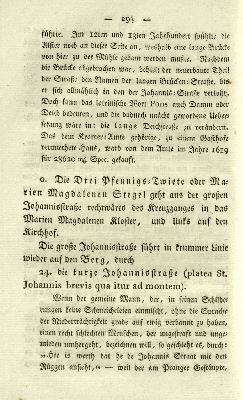 — 293 —
führte. Im 12ten und 13ten Jahrhundert spülte die
Alster noch an dieser Seite an, weshalb eine lange Brücke
von hier zu der Mühle gehen werden mußte. Nachdem
die Brücke abgebrochen war, behielt der neuerbaute Theil
der Straße den Namen der langen Brücken-Straße, bis
er sich allmählich in den der Johannis-Straße verlohr.
Doch kann das lateinische Wort Pons auch Damm oder
Deich bedeuten, und die dadurch unächt gewordene Ueber-
setzung wäre in: die lange Deichstraße zu verändern.
Das dem Kramer-Amte gehörige, zu einem Gasthofe
vermiethete Haus, ward von dem Amte im Jahre 1679
für 23600 Spec. gekauft.
o. Die Drei Pfennigs-Twiete oder Ma-
rien Magdalenen Stegel geht aus der großen
Johannisstraße rechtwärts des Kreuzganges in das
Marien Magdalenen Kloster, und links auf den
Kirchhof.
Die große Johannisstraße führt in krummer Linie
wieder auf den Berg, durch
24. die kurze Johannisstraße (platea St.
Johannis brevis qua itur ad montem).
Wenn der gemeine Mann, der, in seinen Schilde-
rungen keine Schonung kennt, ohne die Sprache
der Niederträchtigkeit grade auf ewig verbannt zu haben,
einen recht schlechten Menschen, der ungeachtet und unge-
mieden umhergeht, bezeichnen will, so geschieht es, durch:
„He is werth dat he de Johannis Straat mit den
Rüggen ansieht,“ — weil der am Pranger Gestäupte,